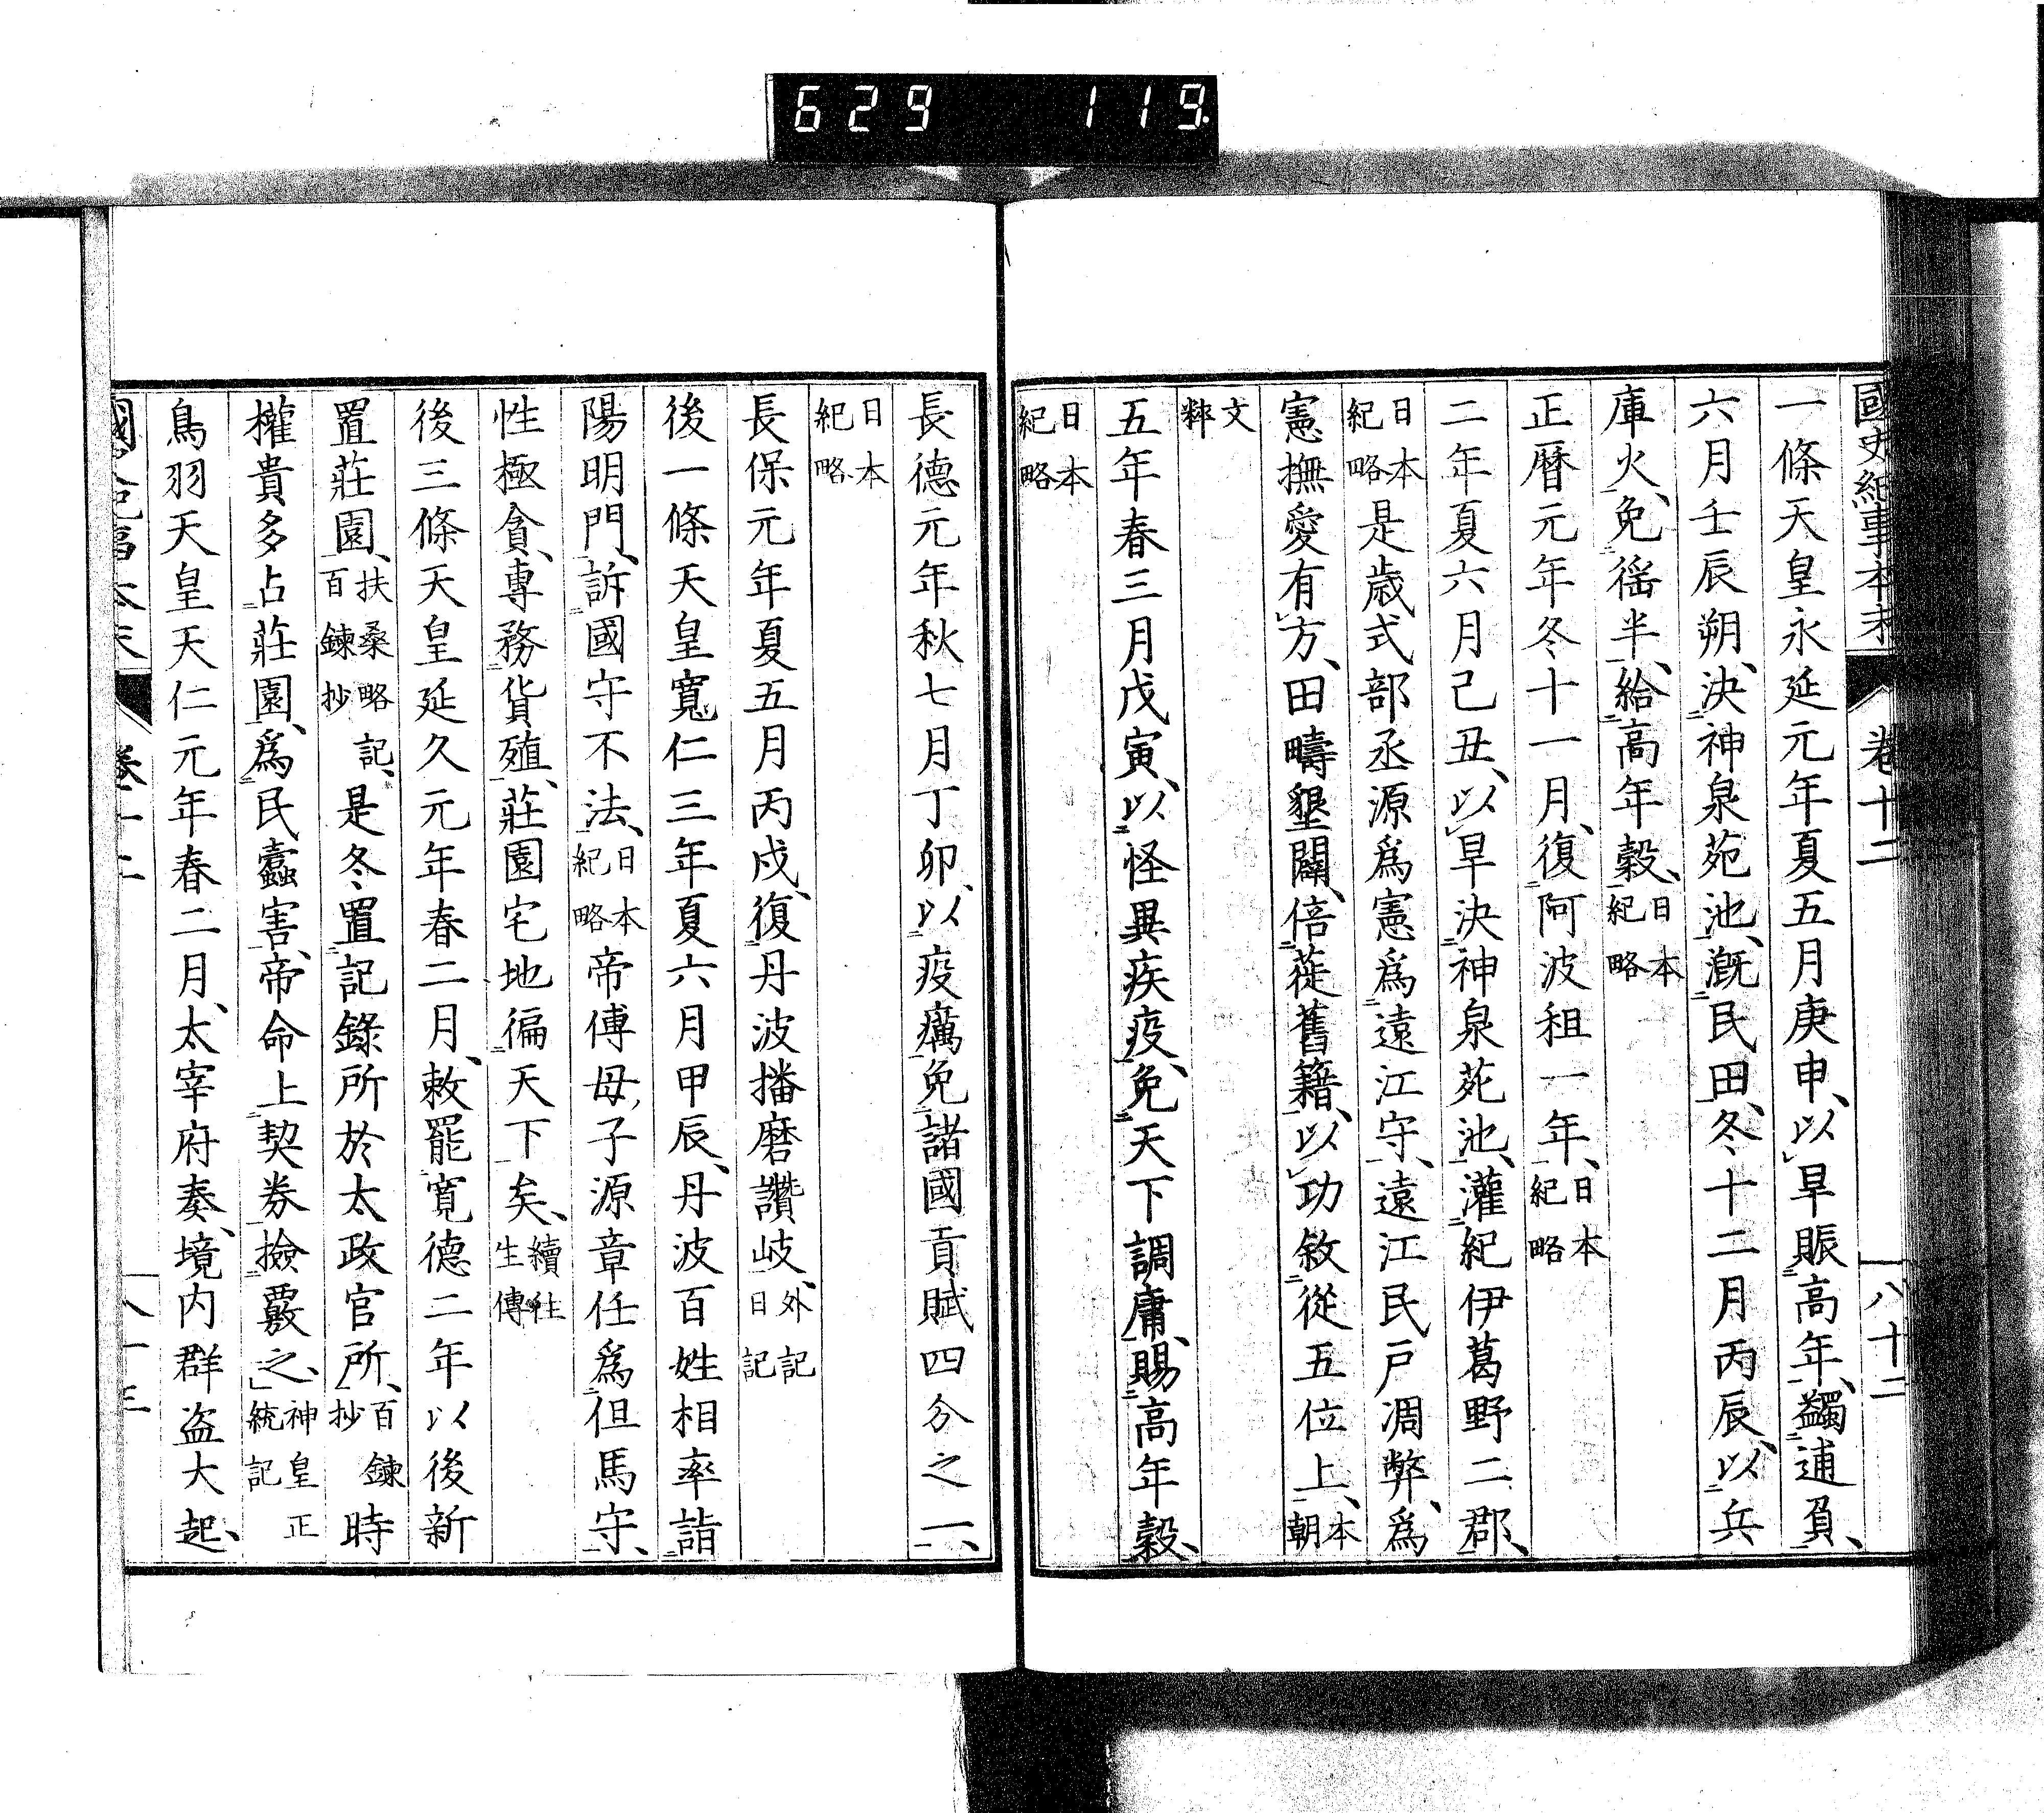 629 119.
國史紀事本末 卷十二 八十二
一條天皇永延元年夏五月庚申、以旱賑高年、蠲逋負、
六月壬辰朔、決神泉苑池、漑民田、冬十二月丙辰、以兵
庫火、免徭半、給高年穀、日本紀略
正曆元年冬十一月、復阿波租一年、日本紀略
二年夏六月己丑、以旱決神泉苑池、灌紀伊葛野二郡、
日本紀略是歲式部丞源爲憲爲遠江守、遠江民戸凋弊、爲
憲撫愛有方、田疇墾闢、倍蓰舊籍、以功敘從五位上、本朝
文粹
五年春三月戊寅、以怪異疾疫、免天下調庸、賜高年穀、
日本紀略
長德元年秋七月丁卯、以疫癘免諸國貢賦四分之一、
日本紀略
長保元年夏五月丙戌、復丹波播磨讚岐、外記日記
後一條天皇寬仁三年夏六月甲辰、丹波百姓相率詣
陽明門、訴國守不法、日本紀略帝傅母子源章任爲但馬守、
性極貪、專務貨殖、莊園宅地徧天下矣、續往生傳
後三條天皇延久元年春二月、敕罷寬德二年以後新
置莊園、扶桑略記、百鍊抄是冬置記錄所於太政官所、百鍊抄時
權貴多占莊園、爲民蠹害、帝命上契券撿覈之、神皇正統記
鳥羽天皇天仁元年春二月、太宰府奏、境内群盗大起、